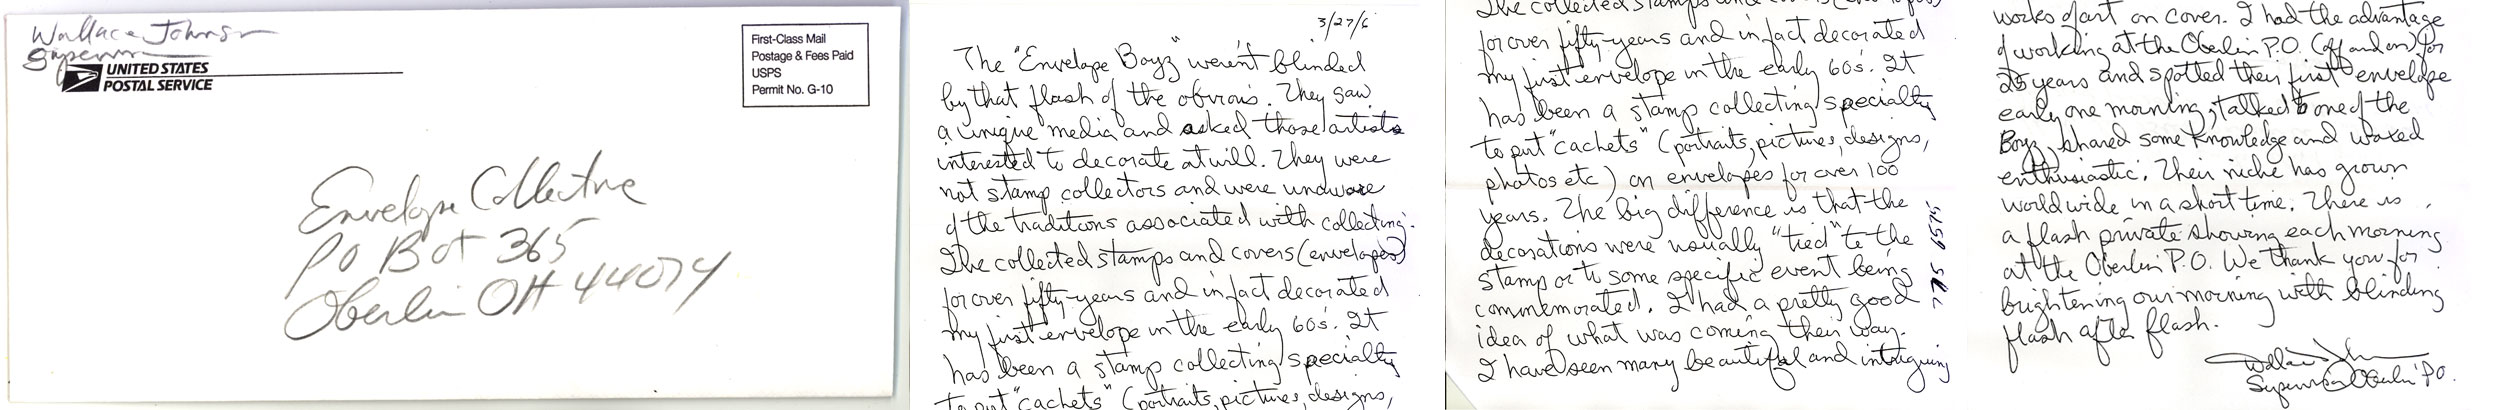 Wallace Johnson
Supervisor
UNITED STATES
POSTAL SERVICE
First-Class Mail
Postage & Fees Paid
USPS
Permit No. G-10
Envelope Collective
PO Box 365
Oberlin OH 44074
3/27/6
The "Envelope Boyz" weren't blinded
by that flash of the obvious. They saw
a unique media and asked those artists
interested to decorate at will. They were
not stamp collectors and were unaware
of the traditions associated with collecting.
I've collected stamps and covers (envelopes)
for over fifty-years and in fact decorated
my first envelope in the early 60s. It
has been a stamp collecting specialty
to put "cachets" (portraits, pictures, designs,
I've collected stamps and covers (envelopes)
for over fifty-years and in fact decorated
my first envelope in the early 60s. It
has been a stamp collecting specialty
to put "cachets" (portraits, pictures, designs,
photos etc) on envelopes for over 100
years. The big difference is that the
decorations were usually "tied" to the
stamp or to some specific event being
commemorated. I had a pretty good
idea of what was coming their way.
I have seen many beautiful and intriguing
works of art on cover. I had the advantage
of working at the Oberlin P.O. (off and on) for
25 years and spotted their first envelope
early one morning, talked to one of the
Boyz, shared some knowledge and waxed
enthusiastic. Their niche has grown
worldwide in a short time. There is
a flash private showing each morning
at the Oberlin P.O. We thank you for
brightening our morning with blinding
flash after flash.
Wallace Johnson
Supervisor Oberlin P.O.